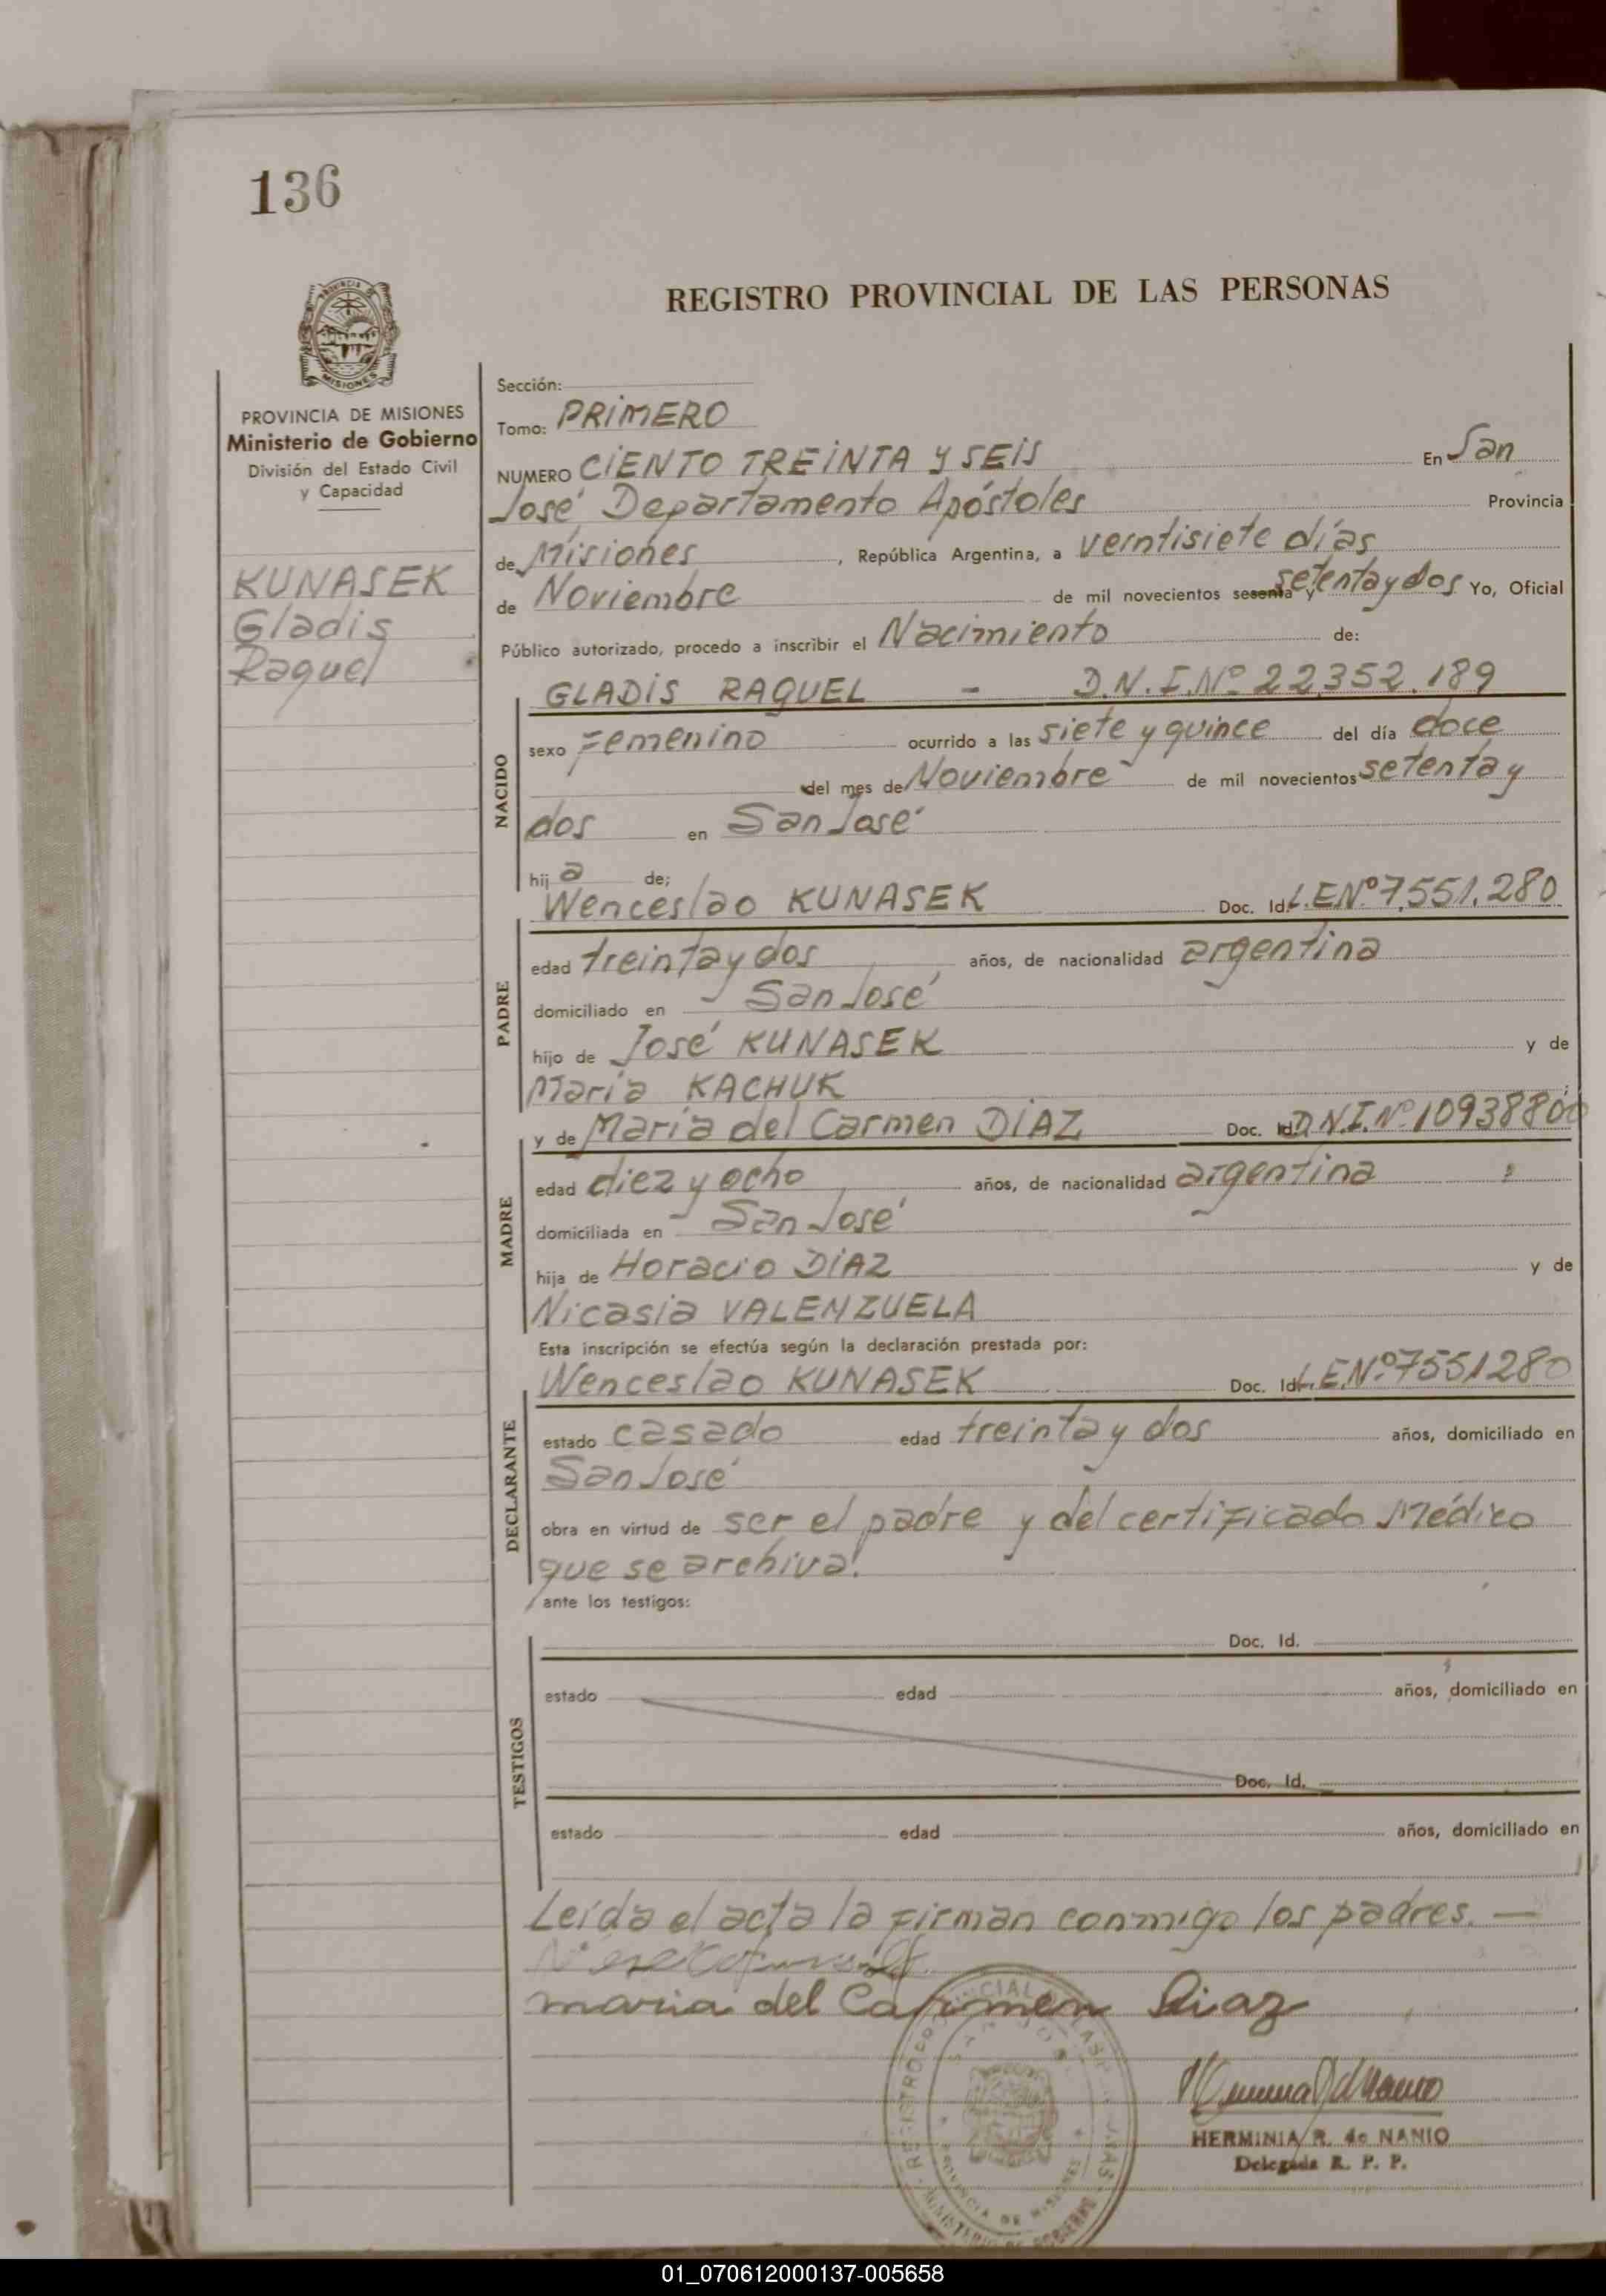 136
REGISTRO PROVINCIAL DE LAS PERSONAS
PROVINCIA DE MISIONES
Ministerio de Gobierno
División del Estado Civil
y Capacidad
KUNASEK
Gladis
Raquel
Sección:
Tomo: PRIMERO
NUMERO CIENTO TREINTA Y SEIS En San
José Departamento Apóstoles Provincia
de Misiones, República Argentina, a veintisiete días
de Noviembre de mil novecientos sesenta y setenta y dos Yo, Oficial
Público autorizado, procedo a inscribir el Nacimiento de:
GLADIS RAQUEL - D.N.I.Nº 22.352.189
NACIDO
sexo Femenino ocurrido a las siete y quince del día doce
del mes de Noviembre de mil novecientos setenta y
dos en San José
hija de;
Wenceslao KUNASEK Doc. Id. L.E.Nº 7.551.280
PADRE
edad treinta y dos años, de nacionalidad argentina
domiciliado en San José
hijo de José KUNASEK y de
María KACHUK ;
y de María del Carmen DIAZ Doc. Id. D.N.I.Nº 10938800
MADRE
edad diez y ocho años, de nacionalidad argentina
domiciliada en San José
hija de Horacio DIAZ y de
Nicasia VALENZUELA
Esta inscripción se efectúa según la declaración prestada por:
Wenceslao KUNASEK Doc. Id. L.E.Nº 7551280
DECLARANTE
estado casado edad treinta y dos años, domiciliado en
San José
obra en virtud de ser el padre y del certificado Médico
que se archiva.
ante los testigos:
Doc. Id.
TESTIGOS
estado edad años, domiciliado en
Doc. Id.
estado edad años, domiciliado en
Leída el acta la firman conmigo los padres. —
maria del Carmen Diaz
HERMINIA R. de NANIO
Delegada R. P. P.
01_070612000137-005658